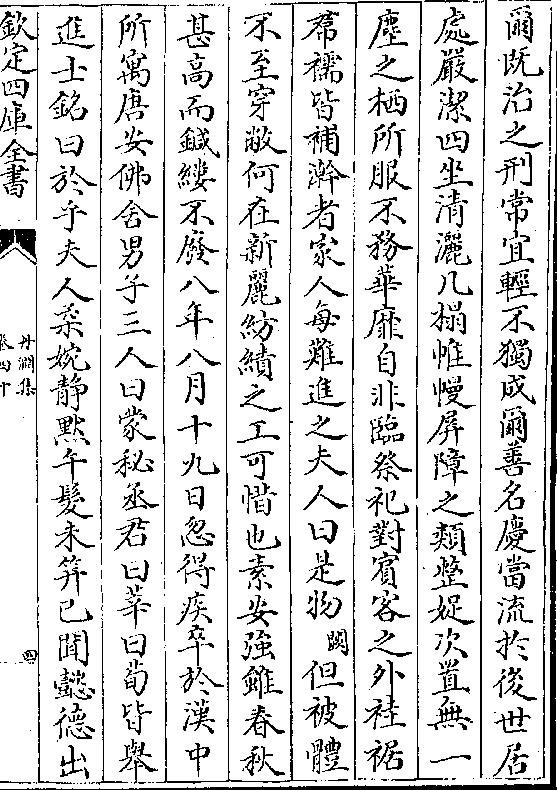 爾既治之刑常宜輕不獨成爾善名慶當流於後世居
處嚴潔四坐清灑几榻帷幔屏障之類整娖次置無一
塵之栖所服不務華靡自非臨祭祀對賓客之外袿裾
帬襦皆補澣者家人每難進之夫人曰是物闕但被體
不至穿敝何在新麗紡績之工可惜也素安強雖春秋
甚高而鍼縷不廢八年八月十九日忽得疾卒於漢中
所寓唐安佛舍男子三人曰蒙秘丞君曰莘曰荀皆舉
進士銘曰於乎夫人柔婉靜黙午髮未笄已聞懿德出
欽定四庫全書
丹淵集
卷四十
四